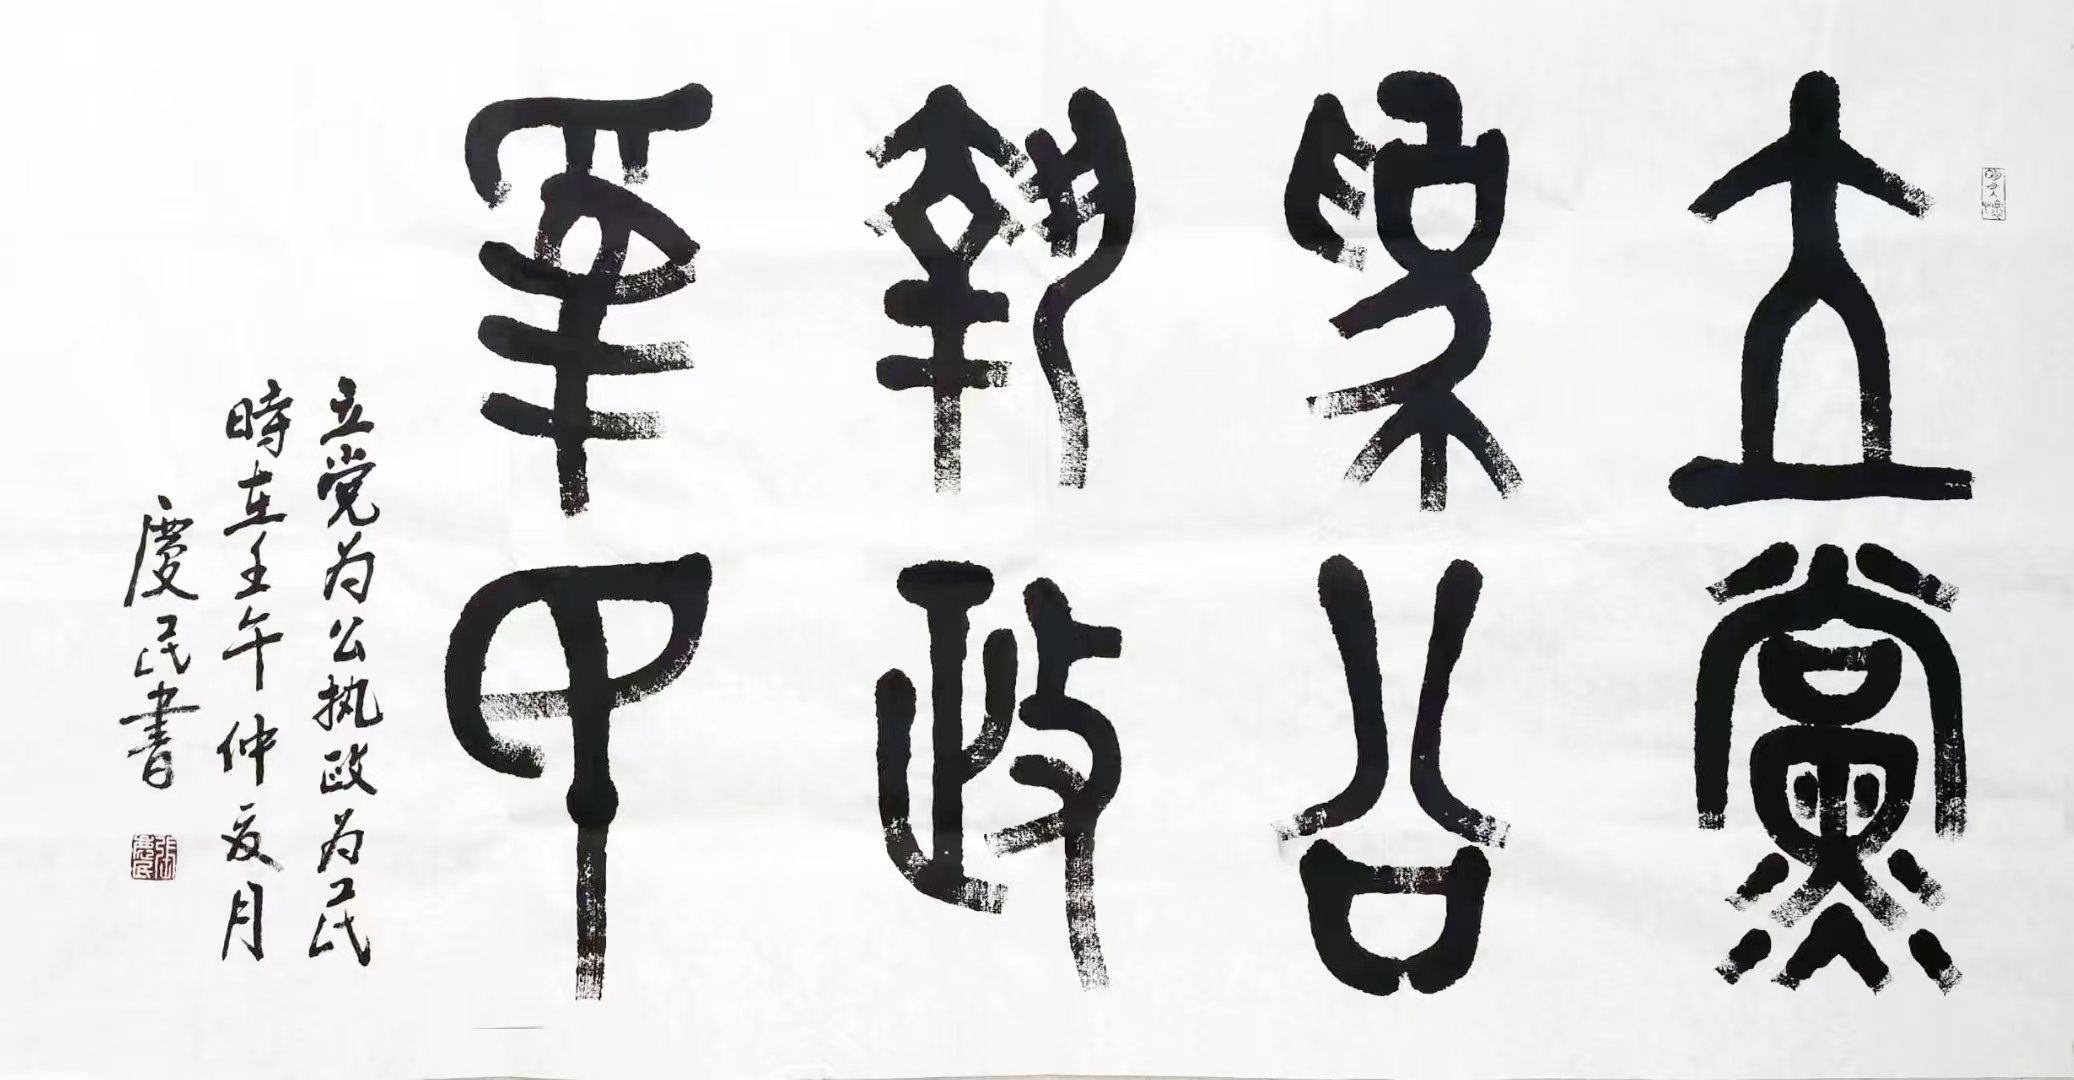 立黨
為公
執政
為民
立党为公执政为民
時在壬午仲夏月
慶民書
張慶民